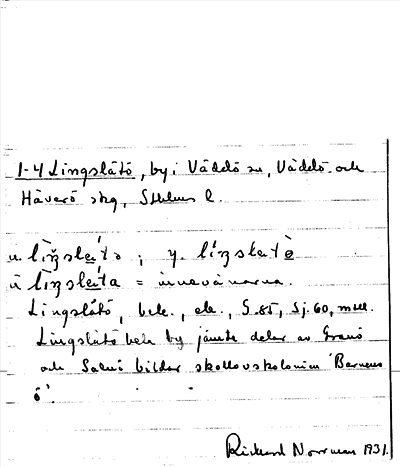 1-4 Lingslätö, by i Väddö sn, Väddö och
Häverö skg, Sthlms l.
lingsleta = innevånarna.
Lingslätö, bebc., ek., G. 85, Sj. 60, mtl.
Lingslätö hela by jämte delar av Granö
och Salnö bildar skollovskolonien 'Barnens
ö'.
Rickard Norrman 1931.